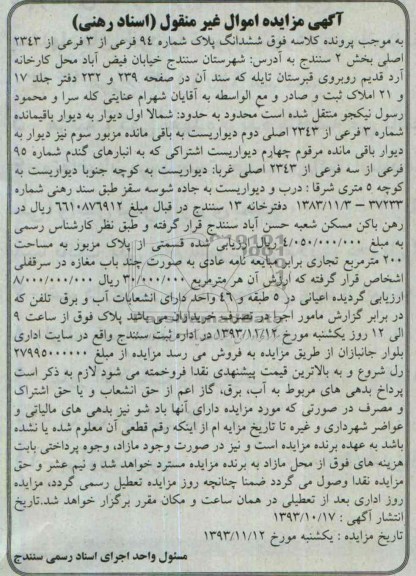 آگهی مزایده اموال غیر منقول (اسناد رهنی)
به موجب پرونده کلاسه فوق ششدانگ پلاک شماره ۹۴ فرعی از ۳ فرعی از ۲۳۴۳
اصلی بخش ۲ سنندج به آدرس: شهرستان سنندج خیابان فیض آباد محل کارخانه
آرد قدیم روبروی قبرستان تایله که سند آن در صفحه ۲۳۹ و ۲۳۲ دفتر جلد ۱۷
و ۲۱ املاک ثبت و صادر و مع الواسطه به آقایان شهرام عنایتی کله سرا و محمود
رسول نیکجو منتقل شده است محدود به حدود: شمالا اول دیوار به دیوار باقیمانده
شماره ۳ فرعی از ۲۳۴۳ اصلی دوم دیواریست به باقی مانده مزبور سوم نیز دیوار به
دیوار باقی مانده مرقوم چهارم دیواریست اشتراکی که به انبارهای گندم شماره ۹۵
فرعی از سه فرعی از ۲۳۴۳ اصلی غربا: دیواریست به کوچه جنوبا دیواریست به
کوچه ۵ متری شرقا : درب و دیواریست به جاده شوسه سقز طبق سند رهنی شماره
۳۷۲۳۳ – ۱۳۸۳/۱۱/۳ دفترخانه ۱۳ سنندج در قبال مبلغ ۶۶۱۰۸۷۶۹۱۲ ریال در
رهن بانک مسکن شعبه حسن آباد سنندج قرار گرفته و طبق نظر کارشناس رسمی
به مبلغ ۴/۰۵۰/۰۰۰/۰۰۰ ریال ارزیابی شده قسمتی از پلاک مزبور به مساحت
۲۰۰ مترمربع تجاری برابر مبایعه نامه عادی به صورت چند باب مغازه در سرقفلی
اشخاص قرار گرفته که ارزش آن هر مترمربع ۳۰/۰۰۰/۰۰۰ ریال ۸/۰۰۰/۰۰۰/۰۰۰
ارزیابی گردیده اعیانی در ۵ طبقه و ۴۶ واحد دارای انشعابات آب و برق تلفن که
در برابر گزارش مامور اجرا در تصرف خریداران می باشد پلاک فوق از ساعت ۹
الی ۱۲ روز یکشنبه مورخ ۱۳۹۳/۱۱/۱۲ در اداره ثبت سنندج واقع در سایت اداری
بلوار جانبازان از طریق مزایده به فروش می رسد مزایده از مبلغ ۲۷۹۹۵۰۰۰۰۰۰
رل شروع و به بالاترین قیمت پیشنهدی نقدا فروخمته می شود لازم به ذکر است
پرداخ بدهی های مربوط به آب، برق، گاز اعم از حق انشعاب و یا حق اشتراک
و مصرف در صورتی که مورد مزایده دارای آنها باد شو نیز بدهی های مالیاتی و
عواضر شهرداری و غیره تا تاریخ مزایه ام از اینکه رقم قطعی آن معلوم شده یا نشده
باشد به عهده برنده مزایده است و نیز در صورت وجود مازاد، وجوه پرداختی بابت
هزینه های فوق از محل مازاد به برنده مزایده مسترد خواهد شد و نیم عشر و حق
مزایده نقدا وصول می گردد ضمنا چنانچه روز مزایده تعطیل رسمی گردد، مزایده
روز اداری بعد از تعطیلی در همان ساعت و مکان مقرر برگزار خواهد شد.تاریخ
انتشار آگهی : ۱۳۹۳/۱۰/۱۷
تاریخ مزایده : یکشنبه مورخ ۱۳۹۳/۱۱/۱۲
مسئول واحد اجرای اسناد رسمی سنندج